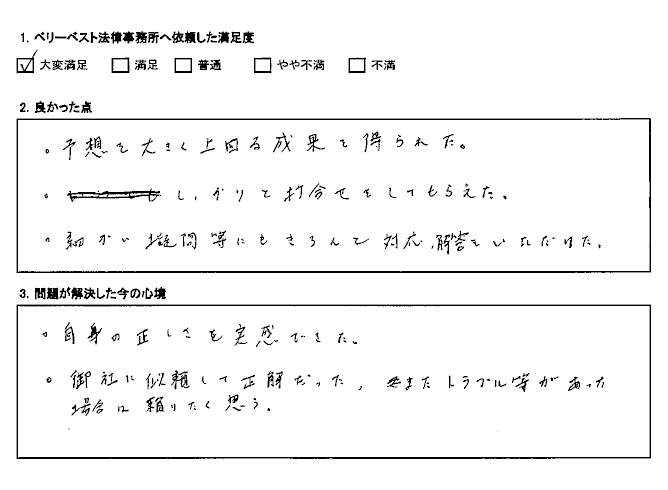 1. ベリーベスト法律事務所へ依頼した満足度
☑ 大変満足 □ 満足 □ 普通 □ やや不満 □ 不満
2. 良かった点
・予想を大きく上回る成果を得られた。
・しっかりと打合せをしてもらえた。
・細かい疑問等にもきちんと対応、解答をいただけた。
3. 問題が解決した今の心境
・自身の正しさを実感できた。
・御社に依頼して正解だった、またトラブル等があった
場合は頼りたく思う。